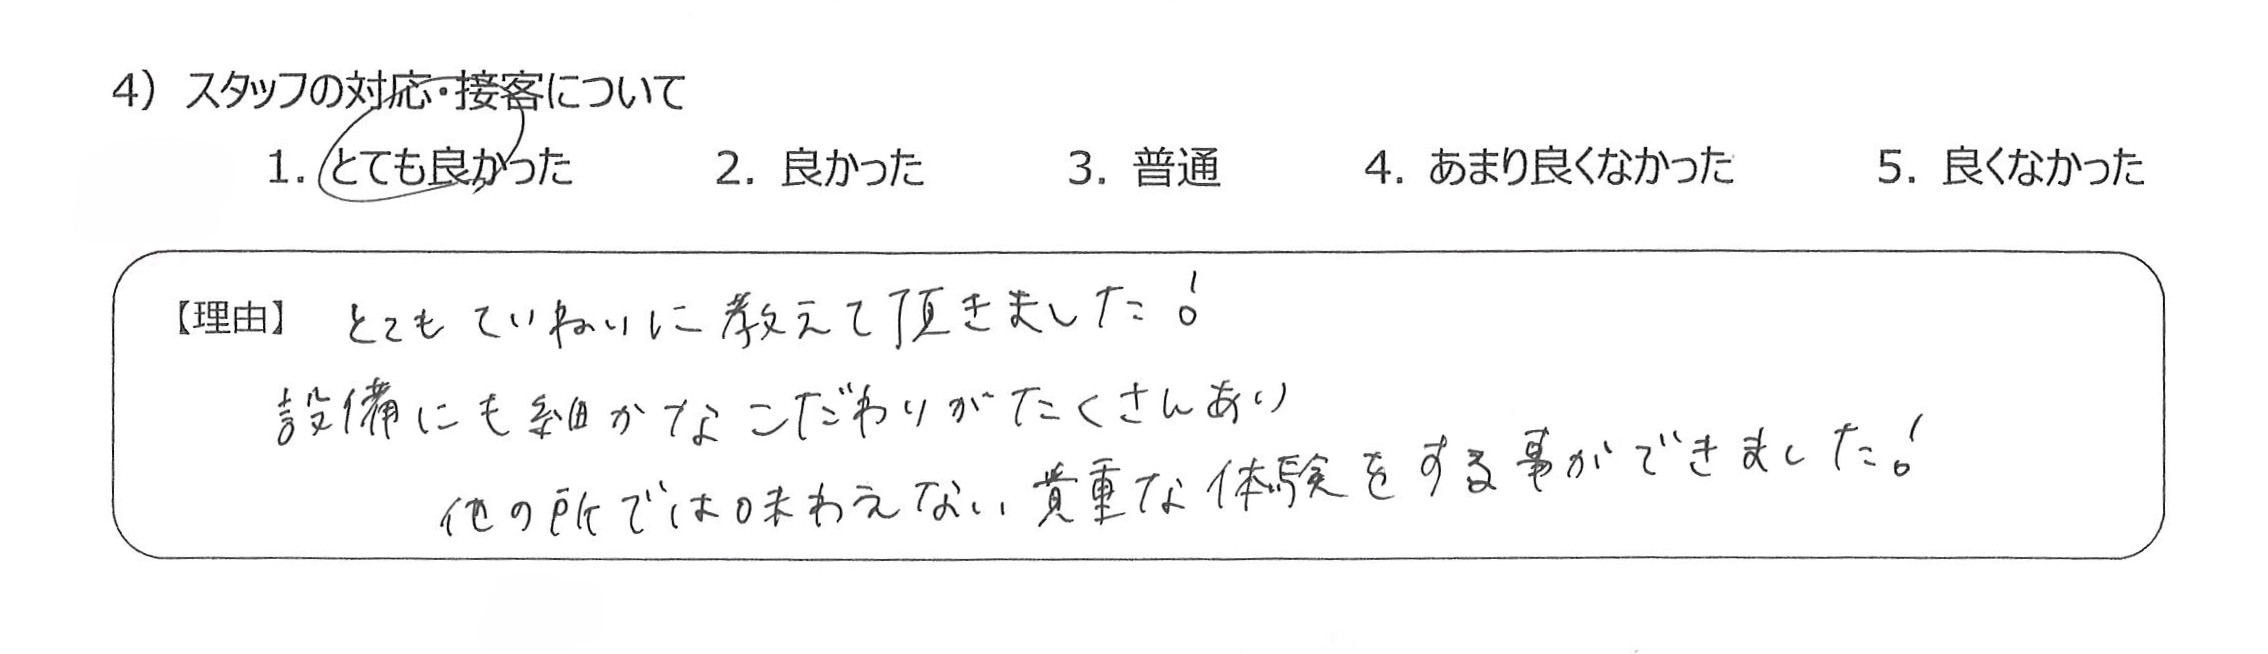 4) スタッフの対応・接客について
1. とても良かった 2. 良かった 3. 普通 4. あまり良くなかった 5. 良くなかった
【理由】 とてもていねいに教えて頂きました!
設備にも細かなこだわりがたくさんあり
他の所では味わえない貴重な体験をする事ができました!